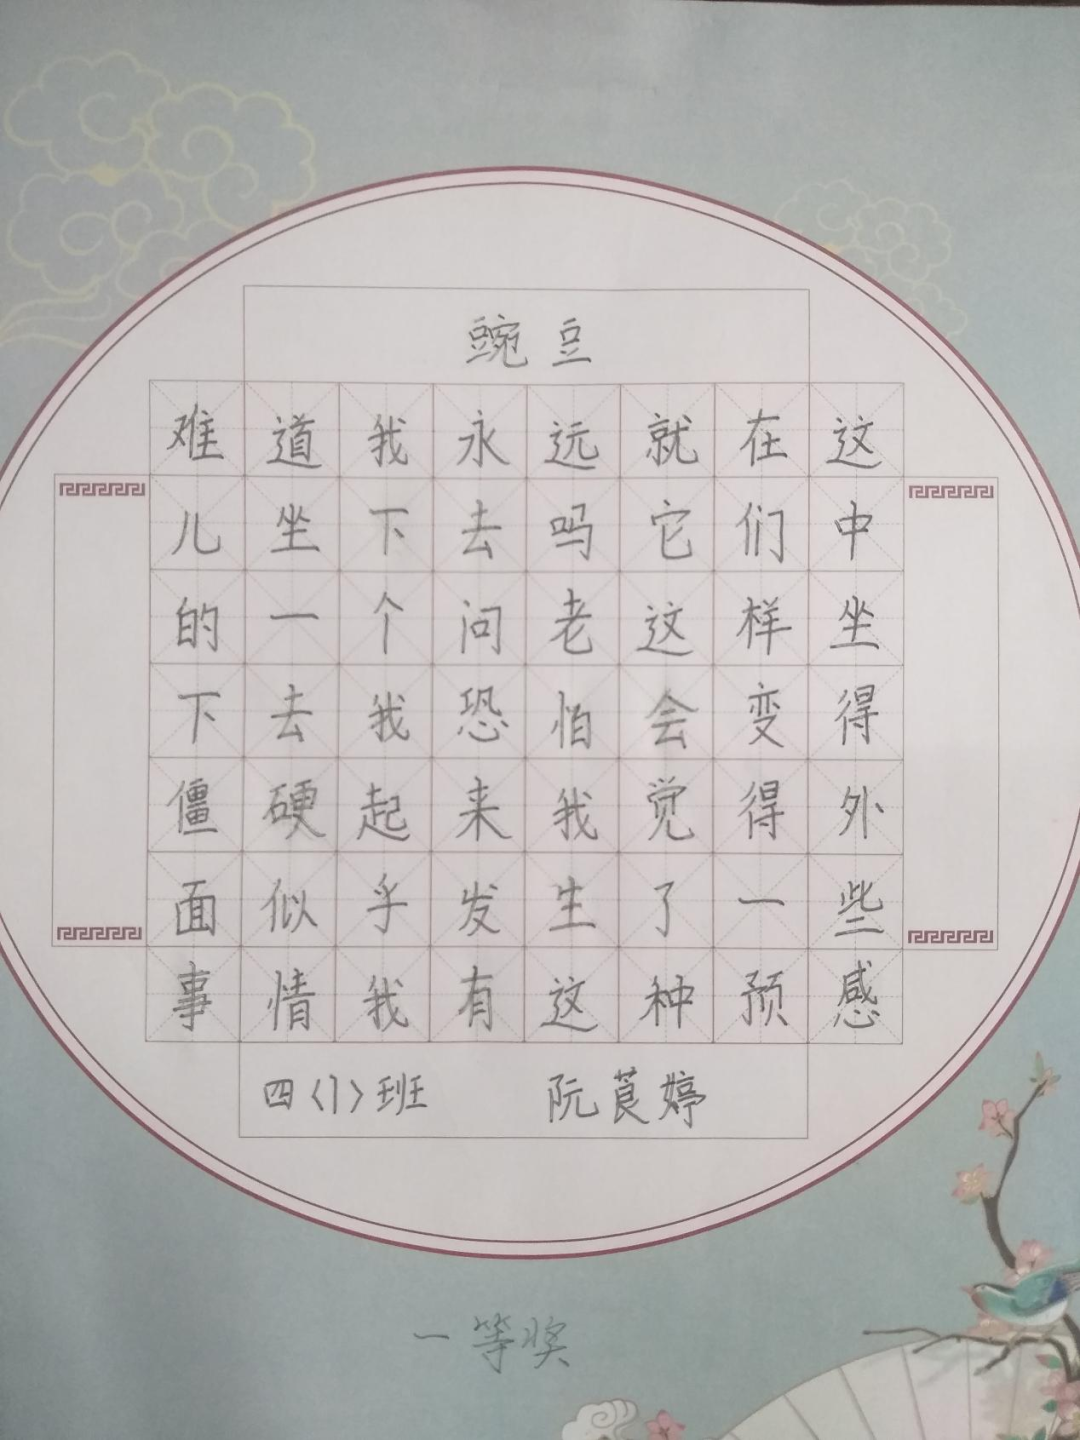 豌豆
难道我永远就在这
儿坐下去吗它们中
的一个问老这样坐
下去我恐怕会变得
僵硬起来我觉得外
面似乎发生了一些
事情我有这种预感
四〈1〉班 阮莨婷
一等奖